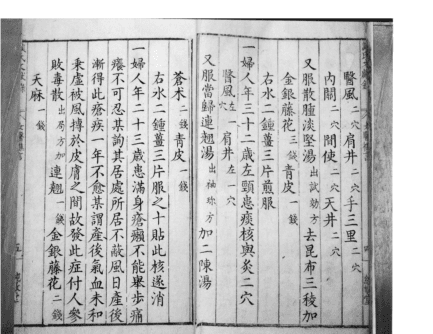 醫風二穴肩井二穴手三里二穴
內關二穴間使二穴天井二穴
又服散腫潰堅湯出試効方去昆布三稜加
金銀藤花三錢青皮一錢
右水二鍾薑三片煎服
一婦人年三十二歲左頸患痰核與灸二穴
醫風左一穴肩井左一穴
又服當歸連翹湯出袖珍方加二陳湯
蒼朮二錢青皮一錢
右水二鍾薑三片服之十貼此核遂消
一婦人年二十三歲患滿身瘡癩不能舉步痛
癢不可忍其詢其居處所居不蔽風日產後
漸得此瘡疾一年不愈某謂產後氣血未和
乘虛被風搏於皮膚之間故發此症付人參
敗毒散出局方加連翹一錢金銀藤花二錢
天麻一錢